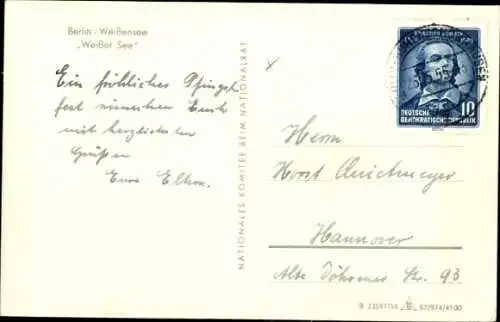 Berlin - Weißensee
„Weißer See"
Ein fröhliches Pfingst-
fest wünschen Euch
mit herzlichsten
Grüßen
Eure Eltern.
NATIONALES KOMITEE BEIM NATIONALRAT
DEUTSCHE
DEMOKRATISCHE REPUBLIK
10
Herrn
Horst Quietmeyer
Hannover
Alte Döhrener Str. 93
B 23597/55
57/974/4100